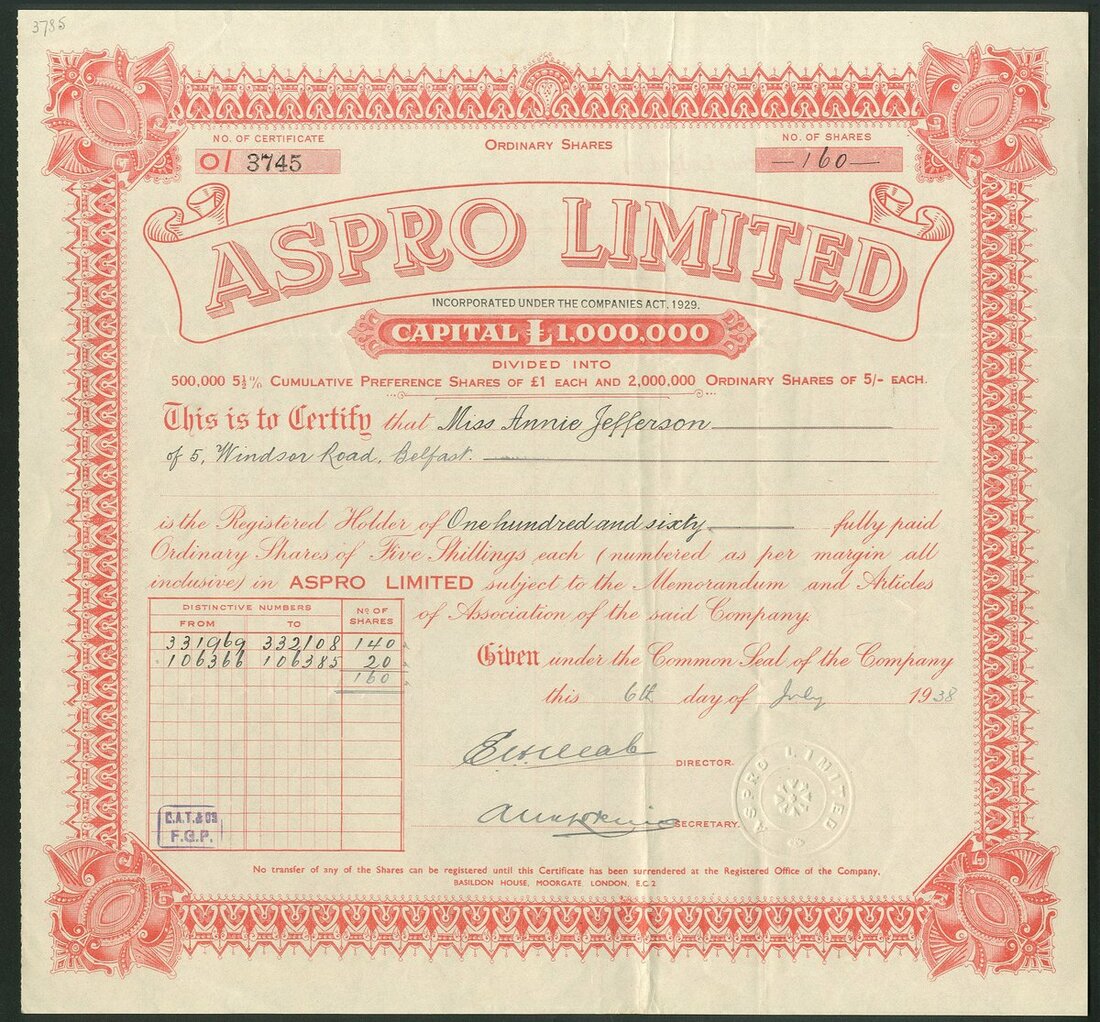 3785
NO. OF CERTIFICATE
O/ 3745
ORDINARY SHARES
NO. OF SHARES
—160—
ASPRO LIMITED
INCORPORATED UNDER THE COMPANIES ACT. 1929.
CAPITAL £1,000,000
DIVIDED INTO
500,000 5½% CUMULATIVE PREFERENCE SHARES OF £1 EACH AND 2,000,000 ORDINARY SHARES OF 5/- EACH.
This is to Certify that Miss Annie Jefferson
of 5, Windsor Road, Belfast.
is the Registered Holder of One hundred and sixty fully paid
Ordinary Shares of Five Shillings each (numbered as per margin all
inclusive) in ASPRO LIMITED subject to the Memorandum and Articles
of Association of the said Company.
DISTINCTIVE NUMBERS
Nº OF SHARES
FROM TO
331969 332108 140
106366 106385 20
160
Given under the Common Seal of the Company
this 6th day of July 1938
DIRECTOR.
SECRETARY.
ASPRO LIMITED
F.G.P.
No transfer of any of the Shares can be registered until this Certificate has been surrendered at the Registered Office of the Company,
BASILDON HOUSE, MOORGATE, LONDON, E.C.2